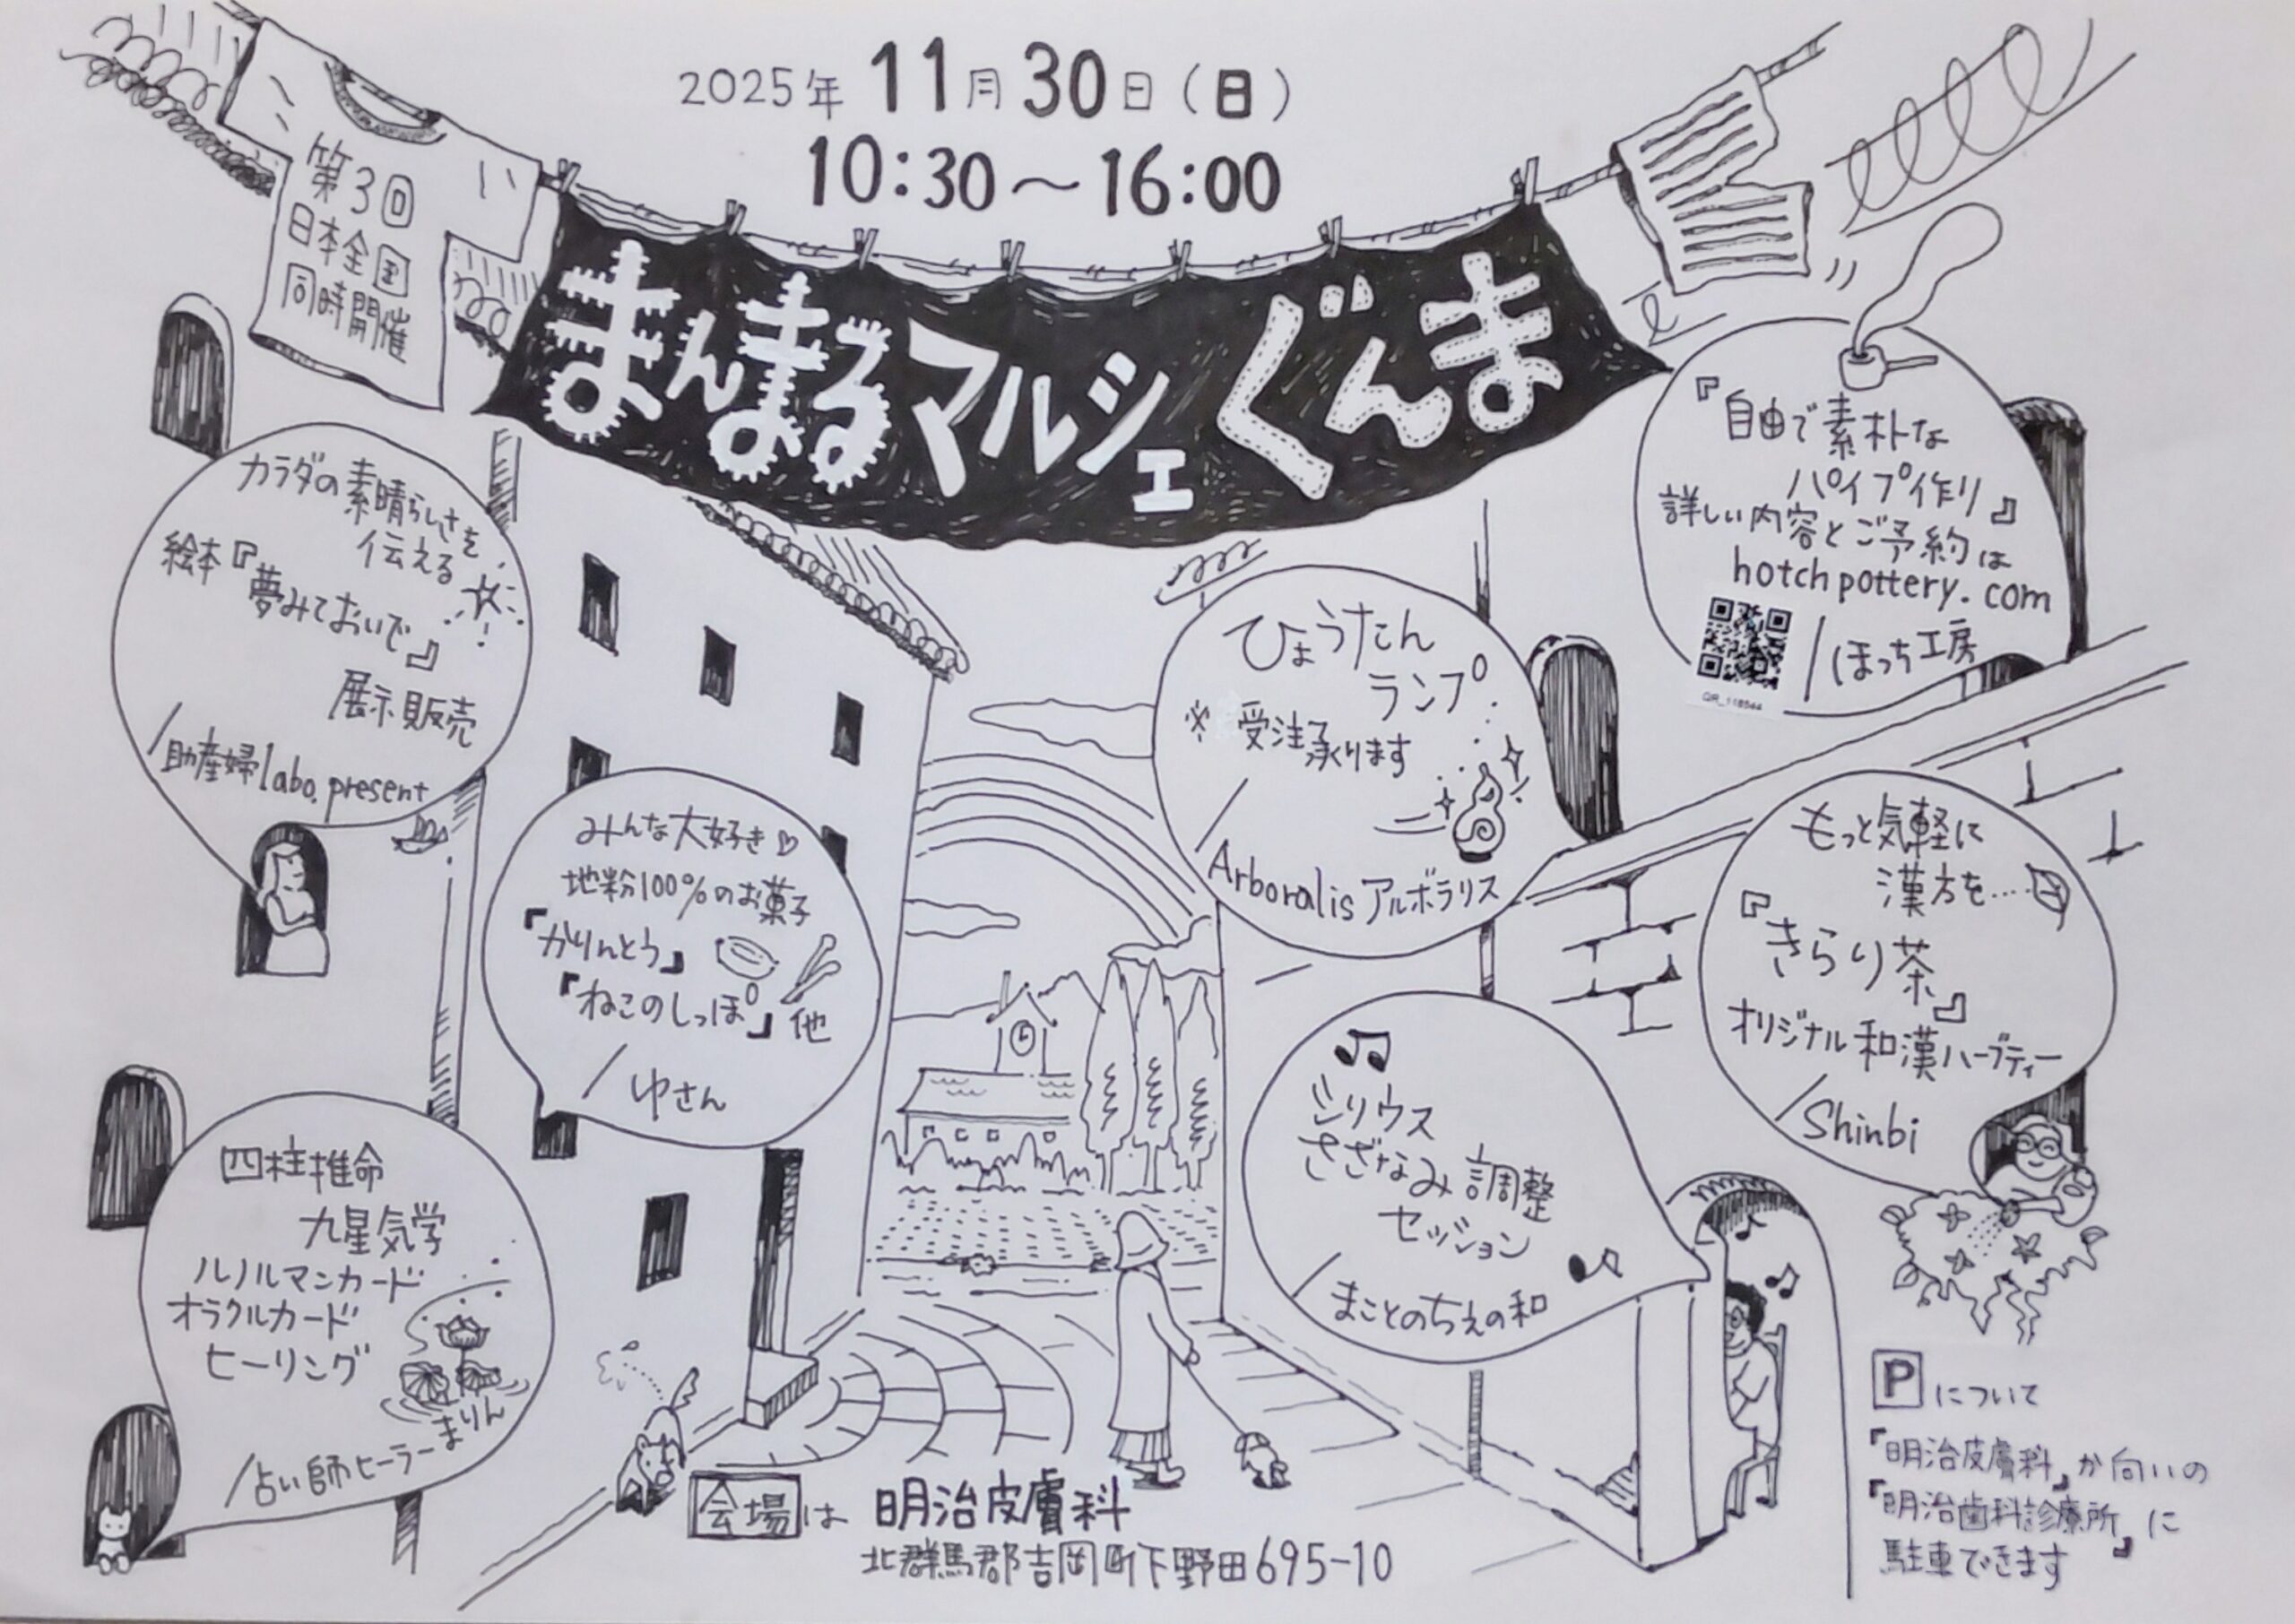 2025年 11月30日(日)
10:30〜16:00
第3回
日本全国
同時開催
まんまるマルシェぐんま
『自由で素朴な
パイプ作り』
詳しい内容とご予約は
hotchpottery.com
/ほっち工房
QR_118544
カラダの素晴らしさを
伝える
絵本『夢みておいで』
展示販売
/助産婦labo.present
ひょうたん
ランプ
※受注承ります
/
Arboralis アルボラリス
みんな大好き♡
地粉100%のお菓子
『かりんとう』
『ねこのしっぽ』他
/ゆさん
もっと気軽に
漢方を……
『きらり茶』
オリジナル和漢ハーブティー
/Shinbi
シリウス
さざなみ調整
セッション
/まことのちえの和
四柱推命
九星気学
ルノルマンカード
オラクルカード
ヒーリング
/占い師ヒーラーまりん
会場は 明治皮膚科
北群馬郡吉岡町下野田695-10
Pについて
『明治皮膚科』か向いの
『明治歯科診療所』に
駐車できます